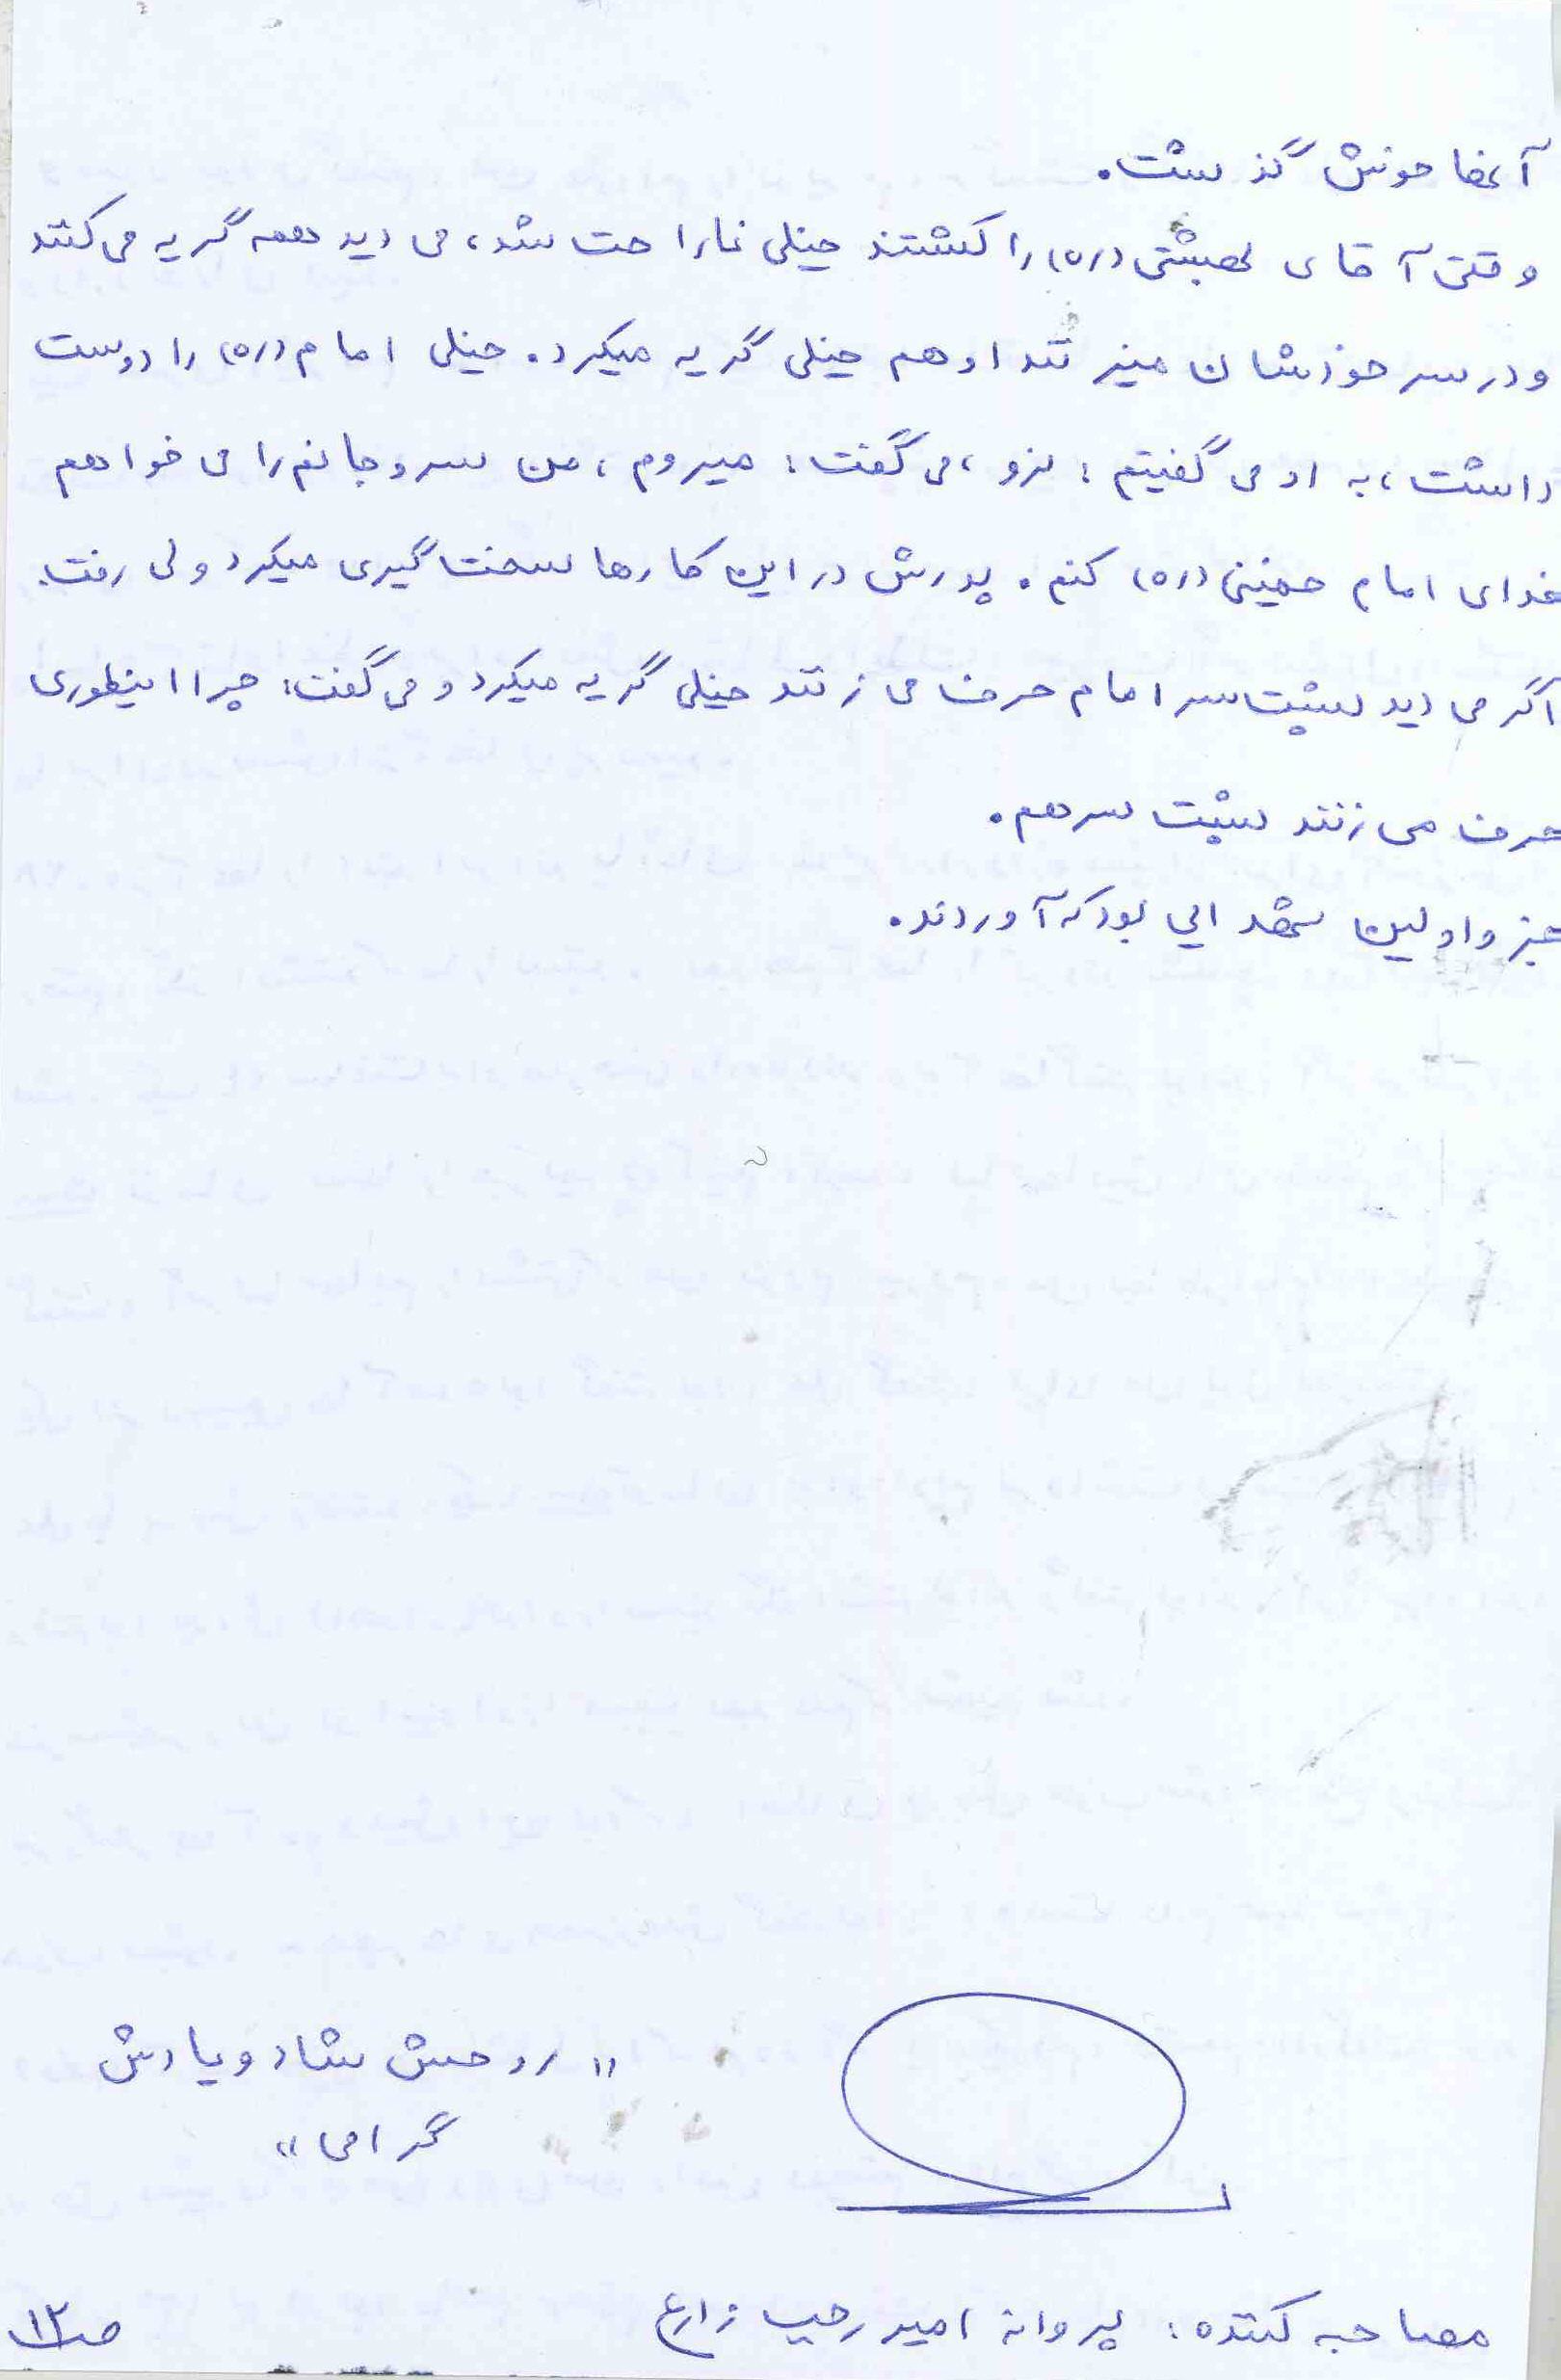 آنجا خوش گذشت.
وقتی آقای بهشتی (ره) را کشتند خیلی ناراحت شد، می دید همه گریه می کنند
و در سر خودشان میزنند او هم خیلی گریه میکرد. خیلی امام (ره) را دوست
داشت، به او می گفتیم: نرو، می گفت: میروم، من سر و جانم را می خواهم
فدای امام خمینی (ره) کنم. پدرش در این کارها سخت گیری میکرد ولی رفت.
اگر می دید پشت سر امام حرف می زنند خیلی گریه میکرد و می گفت: چرا اینطوری
حرف می زنند پشت سر هم.
جزو اولین شهدایی بود که آوردند.
"روحش شاد و یادش
گرامی"
مصاحبه کننده: پروانه امیر رجب زارع
ص ۱۲